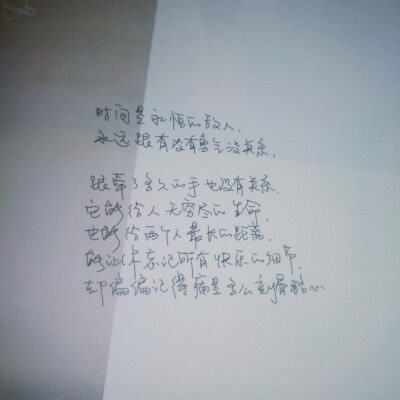 时间是永恒的敌人,
永远跟有没有勇气没关系,
跟牵了多久的手也没有关系.
它能给人无穷尽的生命,
也能给两个人最长的距离,
能让你忘记所有快乐的细节,
却偏偏记得痛是多么刻骨铭心